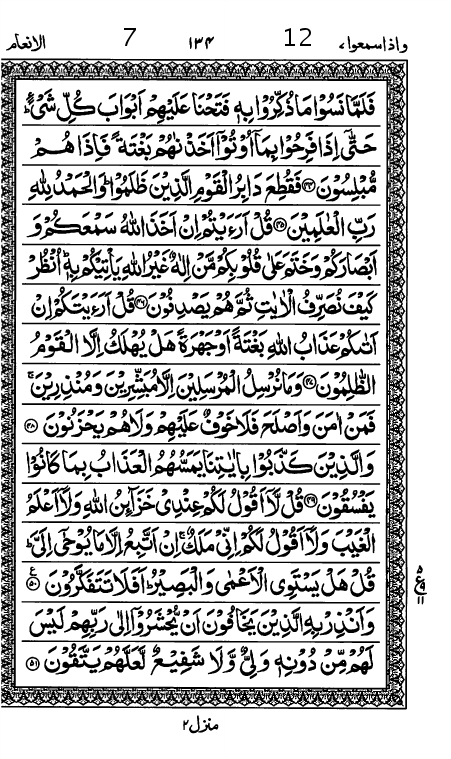 واذاسمعوا، 12 ۱۳۴ 7 الانعام
فَلَمَّا نَسُوْا مَا ذُكِّرُوْا بِهٖ فَتَحْنَا عَلَيْهِمْ اَبْوَابَ كُلِّ شَیْءٍؕ
حَتّٰۤى اِذَا فَرِحُوْا بِمَاۤ اُوْتُوْۤا اَخَذْنٰهُمْ بَغْتَةً فَاِذَا هُمْ
مُّبْلِسُوْنَ ۴۴ فَقُطِعَ دَابِرُ الْقَوْمِ الَّذِيْنَ ظَلَمُوْاؕ وَالْحَمْدُ لِلّٰهِ
رَبِّ الْعٰلَمِيْنَ ۴۵ قُلْ اَرَءَيْتُمْ اِنْ اَخَذَ اللّٰهُ سَمْعَكُمْ وَ
اَبْصَارَكُمْ وَخَتَمَ عَلٰى قُلُوْبِكُمْ مَّنْ اِلٰهٌ غَيْرُ اللّٰهِ يَاْتِيْكُمْ بِهٖؕ اُنْظُرْ
كَيْفَ نُصَرِّفُ الْاٰيٰتِ ثُمَّ هُمْ يَصْدِفُوْنَ ۴۶ قُلْ اَرَءَيْتَكُمْ اِنْ
اَتٰىكُمْ عَذَابُ اللّٰهِ بَغْتَةً اَوْ جَهْرَةً هَلْ يُهْلَكُ اِلَّا الْقَوْمُ
الظّٰلِمُوْنَ ۴۷ وَمَا نُرْسِلُ الْمُرْسَلِيْنَ اِلَّا مُبَشِّرِيْنَ وَمُنْذِرِيْنَۚ
فَمَنْ اٰمَنَ وَاَصْلَحَ فَلَا خَوْفٌ عَلَيْهِمْ وَلَا هُمْ يَحْزَنُوْنَ ۴۸
وَالَّذِيْنَ كَذَّبُوْا بِاٰيٰتِنَا يَمَسُّهُمُ الْعَذَابُ بِمَا كَانُوْا
يَفْسُقُوْنَ ۴۹ قُلْ لَّاۤ اَقُوْلُ لَكُمْ عِنْدِیْ خَزَآئِنُ اللّٰهِ وَلَاۤ اَعْلَمُ
الْغَيْبَ وَلَاۤ اَقُوْلُ لَكُمْ اِنِّیْ مَلَكٌۚ اِنْ اَتَّبِعُ اِلَّا مَا يُوْحٰۤى اِلَیَّؕ
قُلْ هَلْ يَسْتَوِی الْاَعْمٰى وَالْبَصِيْرُؕ اَفَلَا تَتَفَكَّرُوْنَ ۵۰
وَاَنْذِرْ بِهِ الَّذِيْنَ يَخَافُوْنَ اَنْ يُّحْشَرُوْۤا اِلٰى رَبِّهِمْ لَيْسَ
لَهُمْ مِّنْ دُوْنِهٖ وَلِیٌّ وَّلَا شَفِيْعٌ لَّعَلَّهُمْ يَتَّقُوْنَ ۵۱
منزل۲